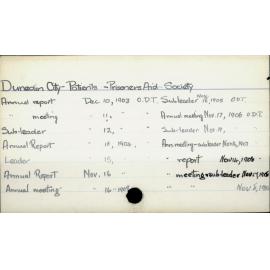 Dunedin City - Patients - Prisoners Aid - Society
Annual report Dec 10, 1903 O.D.T. Sub-leader Nov 18, 1905 O.D.T.
" meeting " 11, " " Annual meeting Nov 17, 1906 O.D.T.
Sub-leader " 12, " " Sub-leader Nov 19, "
Annual Report " 1905 " Ann meeting - sub-leader Nov 1907
Leader 15, " " report Nov 14, 1906
Annual Report Nov. 16 " " meeting + subleader Nov 1906
Annual meeting " 16 - 1905 " Nov 5, 190